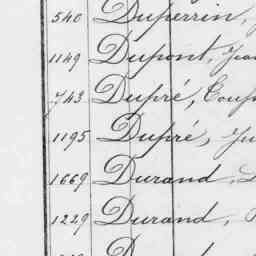 540 Duperrin,
1149 Dupont, Jean
743 Dupré,
1195 Dupré,
1669 Durand,
1229 Durand,